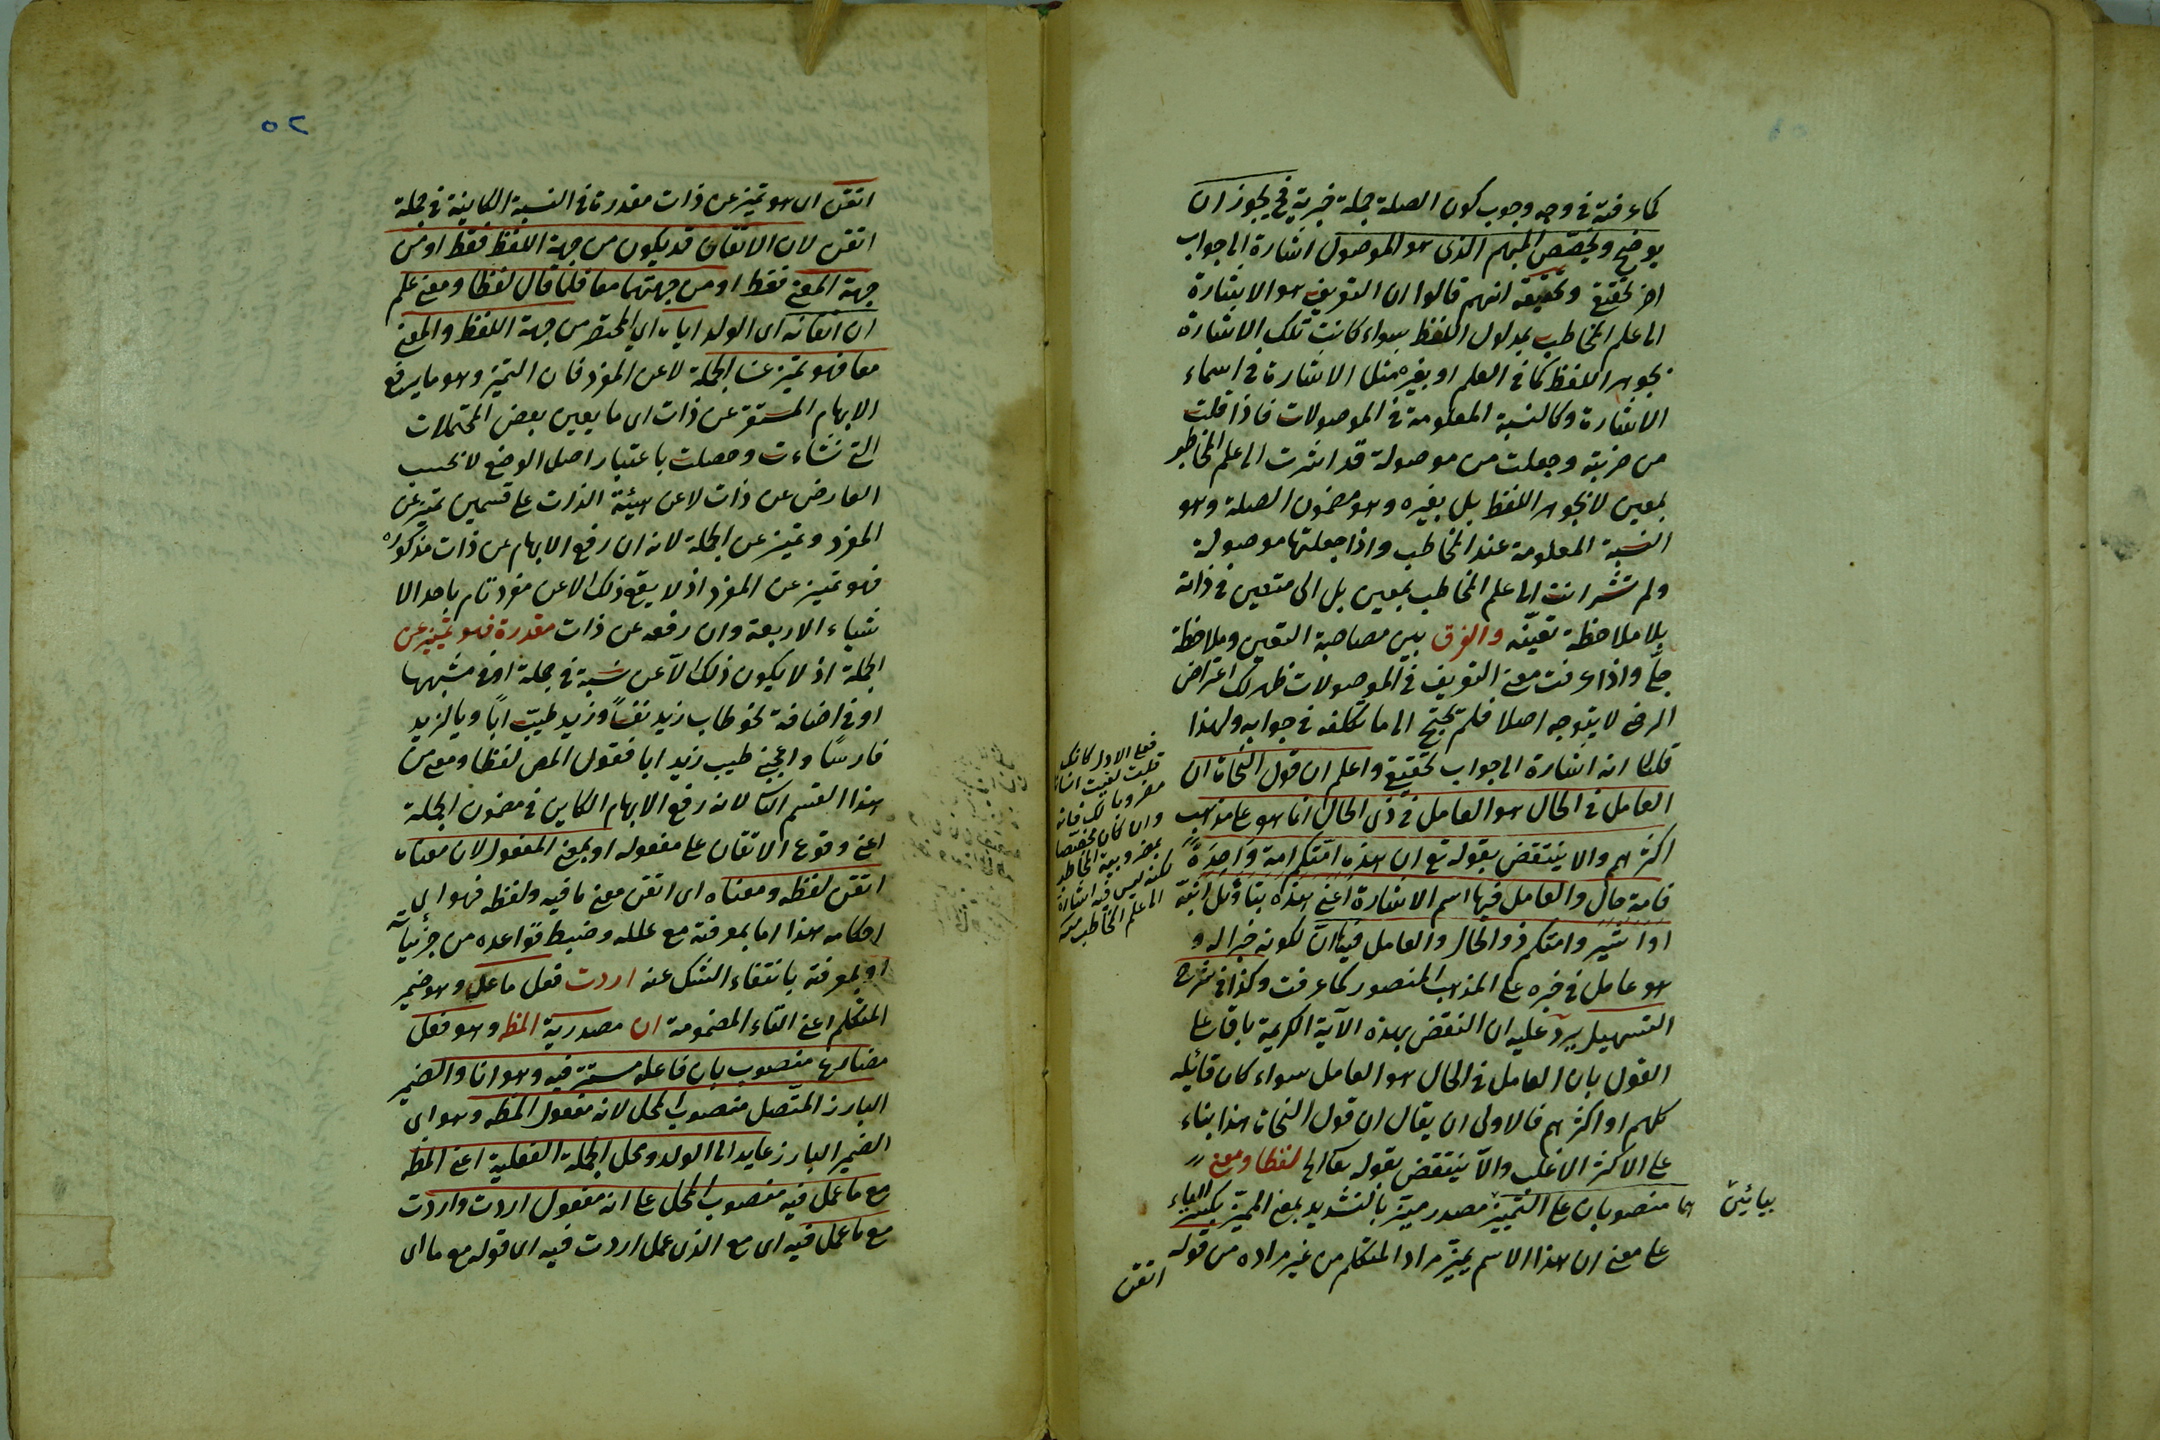 كما عرفته في وجه وجوب كون الصلة جملة خبرية فح يجوز ان
يوضح ويخصص المبهم الذي هو الموصول اشارة الى جواب
اخر تحقيقي وتحقيقه انهم قالوا ان التعريف هو الاشارة
الى علم المخاطب بمدلول اللفظ سواء كانت تلك الاشارة
بجوهر اللفظ كما في العلم او بغيره مثل الاشارة في اسماء
الاشارة وكالنسبة المعلومة في الموصولات فاذا قلت
من ضربته وجعلت من موصولة قد اشرت الى علم المخاطب
بمعين لا بجوهر اللفظ بل بغيره وهو مضمون الصلة وهو
النسبة المعلومة عند المخاطب واذا جعلتها موصوفة
ولم تشر انت الى علم المخاطب بمعين بل الى متعين في ذاته
بلا ملاحظة تعينه والفرق بين مصاحبة التعين وملاحظة
جلي واذا عرفت معنى التعريف في الموصولات ظهر لك اعتراض
الرضي لا يتوجه اصلا فلم يحتج الى ما تكلفه في جوابه ولهذا
قلنا انه اشارة الى جواب تحقيقي واعلم ان قول النحاة ان
العامل في الحال هو العامل في ذي الحال انما هو على مذهب
اكثرهم والا ينتقض بقوله تع ان هذه امتكم امة واحدة
فامة حال والعامل فيها اسم الاشارة اعني هذه بتأويل انبه
او اشير وامتكم ذو الحال والعامل فيه ان لكونه خبرا له و
هو عامل في خبره على المذهب المنصور كما عرفت وكذا في شرح
التسهيل يرد عليه ان النقض بهذه الآية الكريمة باق على
القول بان العامل في الحال هو العامل سواء كان قائله
كلهم او اكثرهم فالاولى ان يقال ان قول النحاة هذا بناء
على الاكثر الاغلب والا ينتقض بقوله تعالى لفظا ومعنى
هما منصوبان على التمييز مصدر ميز بالتشديد بمعنى المميز بكسر الياء
بيائين
على معنى ان هذا الاسم يميز مراد المتكلم من غير مراده من قوله
اتقن
فعلى الاول كانك
قلت لقيت انسانا
مضروبا لك فانه
وان كان مختصا
بمضروبية المخاطب
لكنه ليس فيه اشارة
الى علم المخاطب
٥٢
اتقن اي هو تميز عن ذات مقدرة في النسبة الكاينة في جملة
اتقن لان الاتقان قد يكون من جهة اللفظ فقط او من
جهة المعنى فقط او من جهتهما معا فلما قال لفظا ومعنى علم
ان اتقانه اي الولد اياه اي المختصر من جهة اللفظ والمعنى
معا فهو تميز عن الجملة لا عن المفرد فان التميز وهو ما يرفع
الابهام المستقر عن ذات اي ما يعين بعض المحتملات
التي نشاءت وحصلت باعتبار اصل الوضع لا بحسب
العارض عن ذات لا عن هيئة الذات على قسمين تميز عن
المفرد وتميز عن الجملة لانه ان رفع الابهام عن ذات مذكورة
فهو تميز عن المفرد اذ لا يقع ذلك الا عن مفرد تام باحد الا
شياء الاربعة وان رفعه عن ذات مقدرة فهو تميز عن
الجملة اذ لا يكون ذلك الا عن نسبة في جملة او في مشبهها
او في اضافة نحو طاب زيد نفسا وزيد طيب ابا ويا لزيد
فارسا واعجبني طيب زيد ابا فقول المص لفظا ومعنى من
هذا القسم لانه رفع الابهام الكاين في مضمون الجملة
اعني وقوع الاتقان على مفعوله او بمعنى المفعول لان معناه
اتقن لفظه ومعناه اي اتقن معنى ما فيه ولفظه فهو اي
احكامه هذا اما بمعرفته مع علله وضبط قواعده من جزئياته
او بمعرفة بانتفاء الشك عنه اردت فعل ماعل وهو ضمير
المتكلم اعني التاء المضمومة ان مصدرية انظ وهو فعل
مضارع منصوب بان فاعله مستتر فيه وهو انا والضمير
البارز المتصل منصوب المحل لانه مفعول انظمه وهو اي
الضمير البارز عايد الى الولد ومحل الجملة الفعلية اعني انظمه
مع ما عمل فيه منصوب المحل على انه مفعول اردت واردت
مع ما عمل فيه اي مع الذي عمل اردت فيه اي قوله مع ما اي